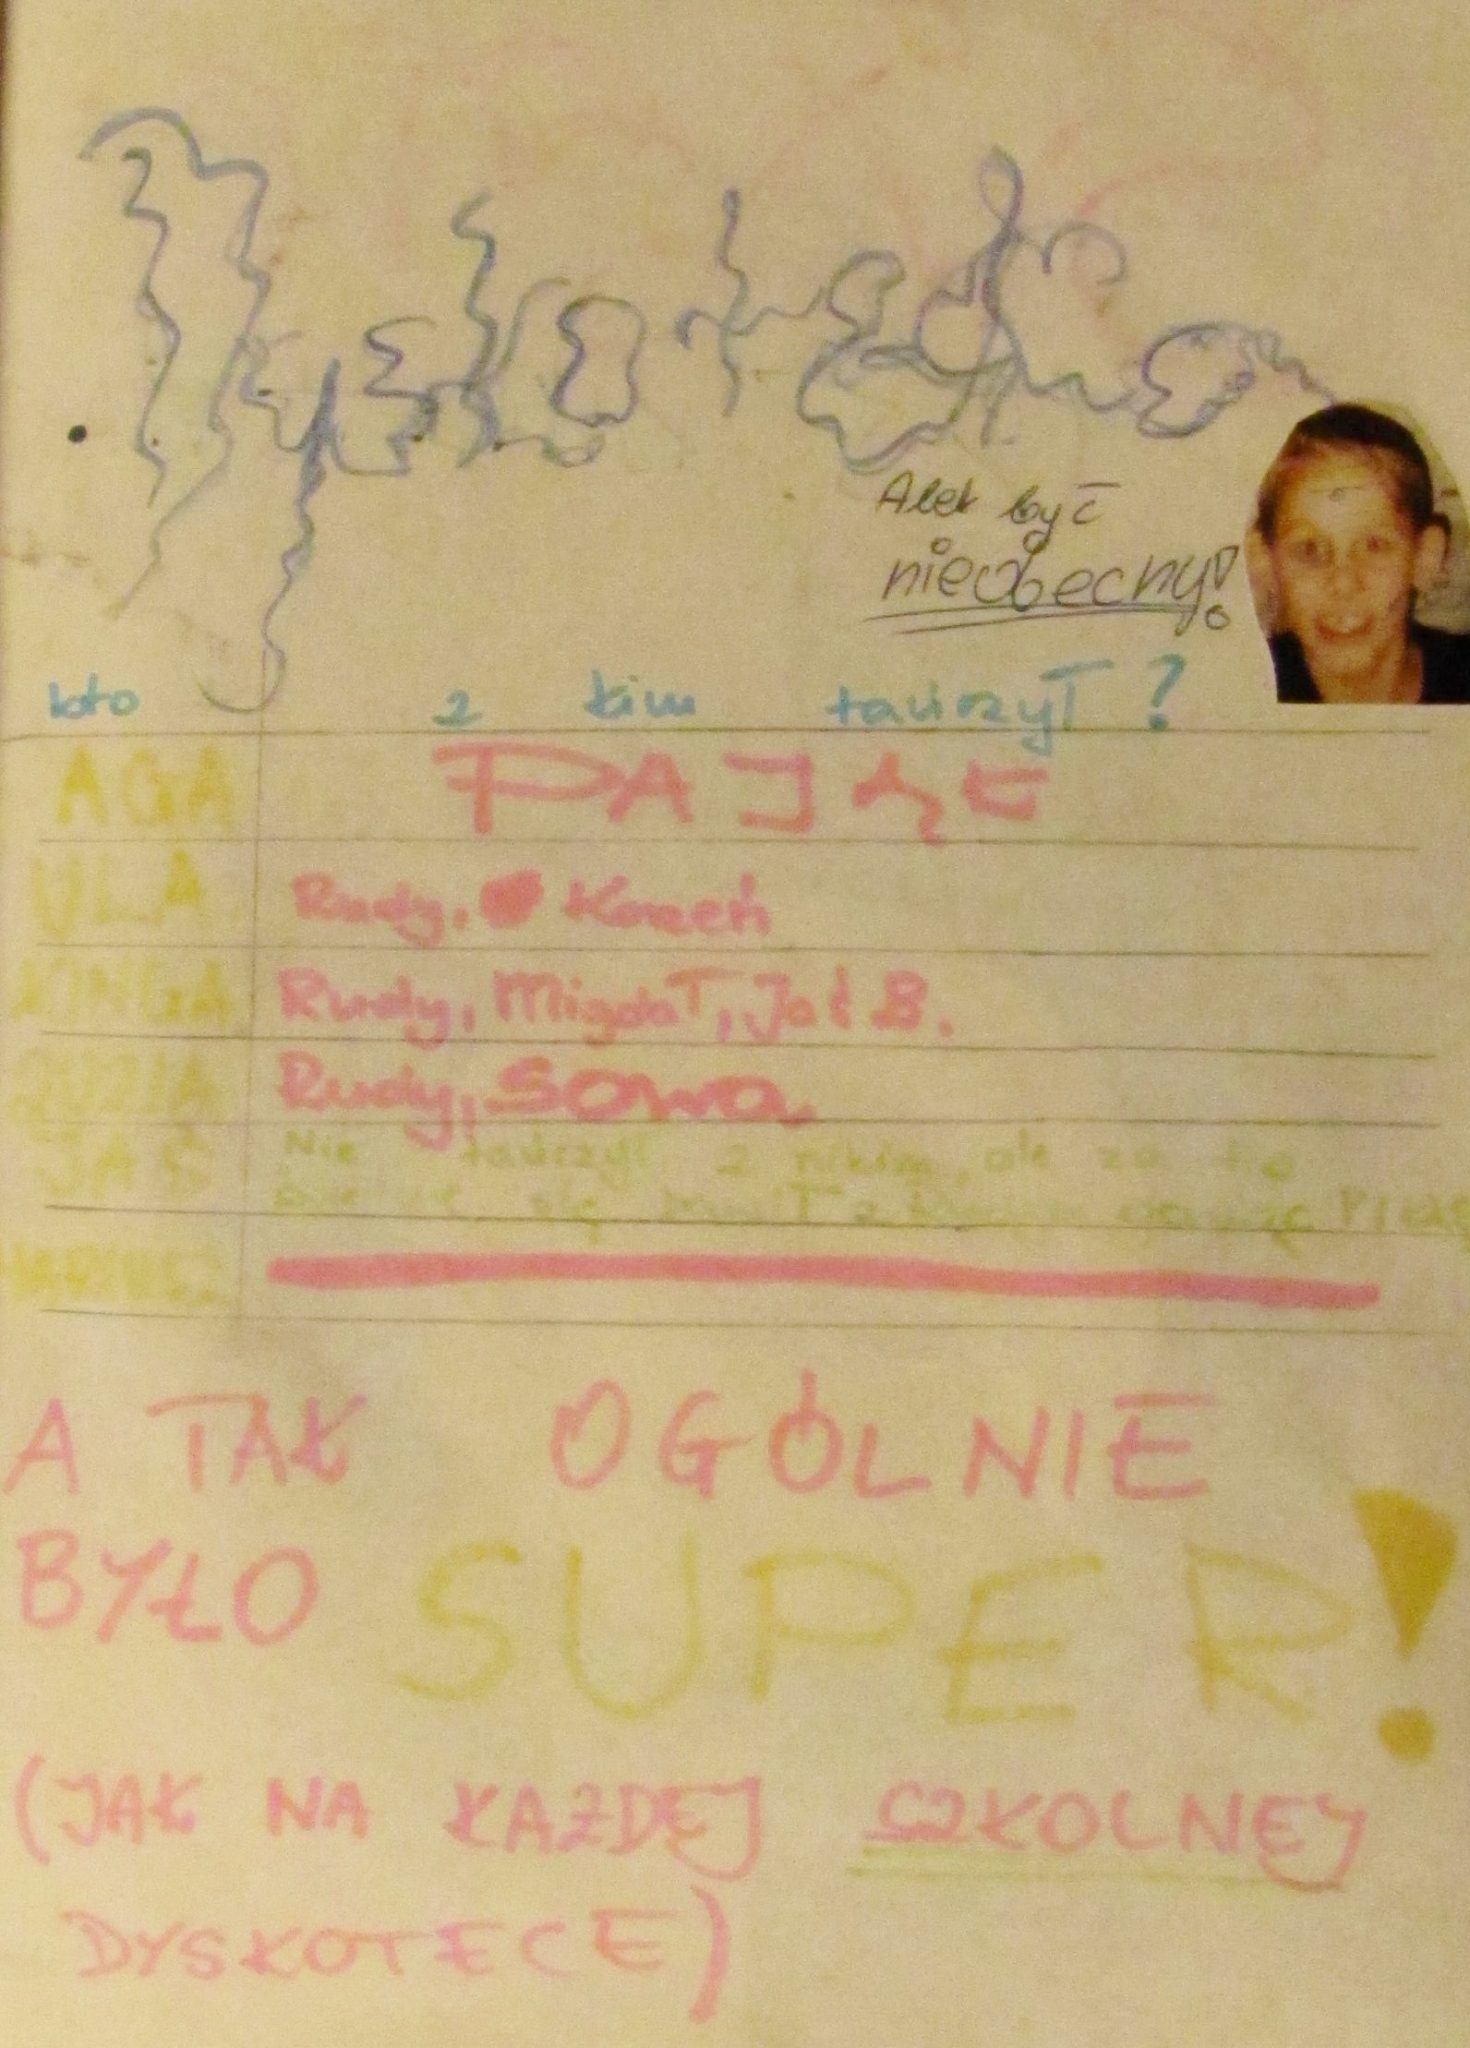 Dyskoteka
Alek być
nieobecny!
kto z kim tańczył?
AGA PAJĄK
ULA Rudy, Korzeń
KINGA Rudy, Migdał, Jaś B.
ZUZIA Rudy, Sowa
JAŚ Nie tańczył z nikim, ale za to
się
A TAK OGÓLNIE
BYŁO SUPER!
(JAK NA KAŻDEJ SZKOLNEJ
DYSKOTECE)